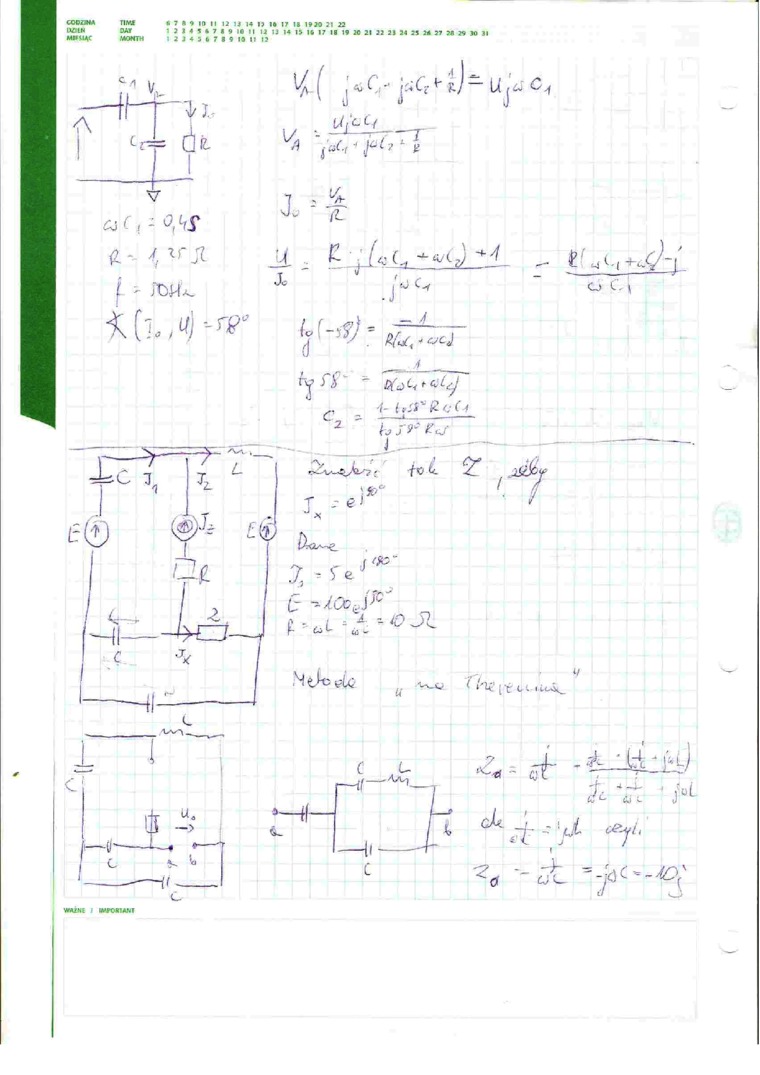 CODZINA TIME 6 7 8 9 10 11 12 13 14 15 16 17 18 19 20 21 22
DZIEŃ DAY 1 2 3 4 5 6 7 8 9 10 11 12 13 14 15 16 17 18 19 20 21 22 23 24 25 26 27 28 29 30 31
MIESIĄC MONTH 1 2 3 4 5 6 7 8 9 10 11 12
C1 V_A
J_0
C_2 R
V_A ( jωC_1 + jωC_2 + 1/R ) = U jωC_1
V_A = U jωC_1 / (jωC_1 + jωC_2 + 1/R)
J_0 = V_A / R
ωC_1 = 0,4S
R = 1,25 Ω
f = 50Hz
∢ (I_0, U) = 58°
U/J_0 = (R j(ωC_1 + ωC_2) + 1) / jωC_1 = (R(ωC_1 + ωC_2) - j) / ωC_1
tg(-58) = -1 / R(ωC_1 + ωC_2)
tg 58° = 1 / R(ωC_1 + ωC_2)
C_2 = (1 - tg58° R ωC_1) / (tg 58° Rω)
C J_1 J_2 L
E J_z E
R
C Z
J_x
C
Znaleźć tak Z, żeby
J_x = e^j90°
Dane
E = 100e^j50°
R = ωL = 1/ωC = 10 Ω
Metoda „na Thevenina"
L
C
U_0
C a b
C
C L
a b
C
czyli
= -10j
WAŻNE / IMPORTANT